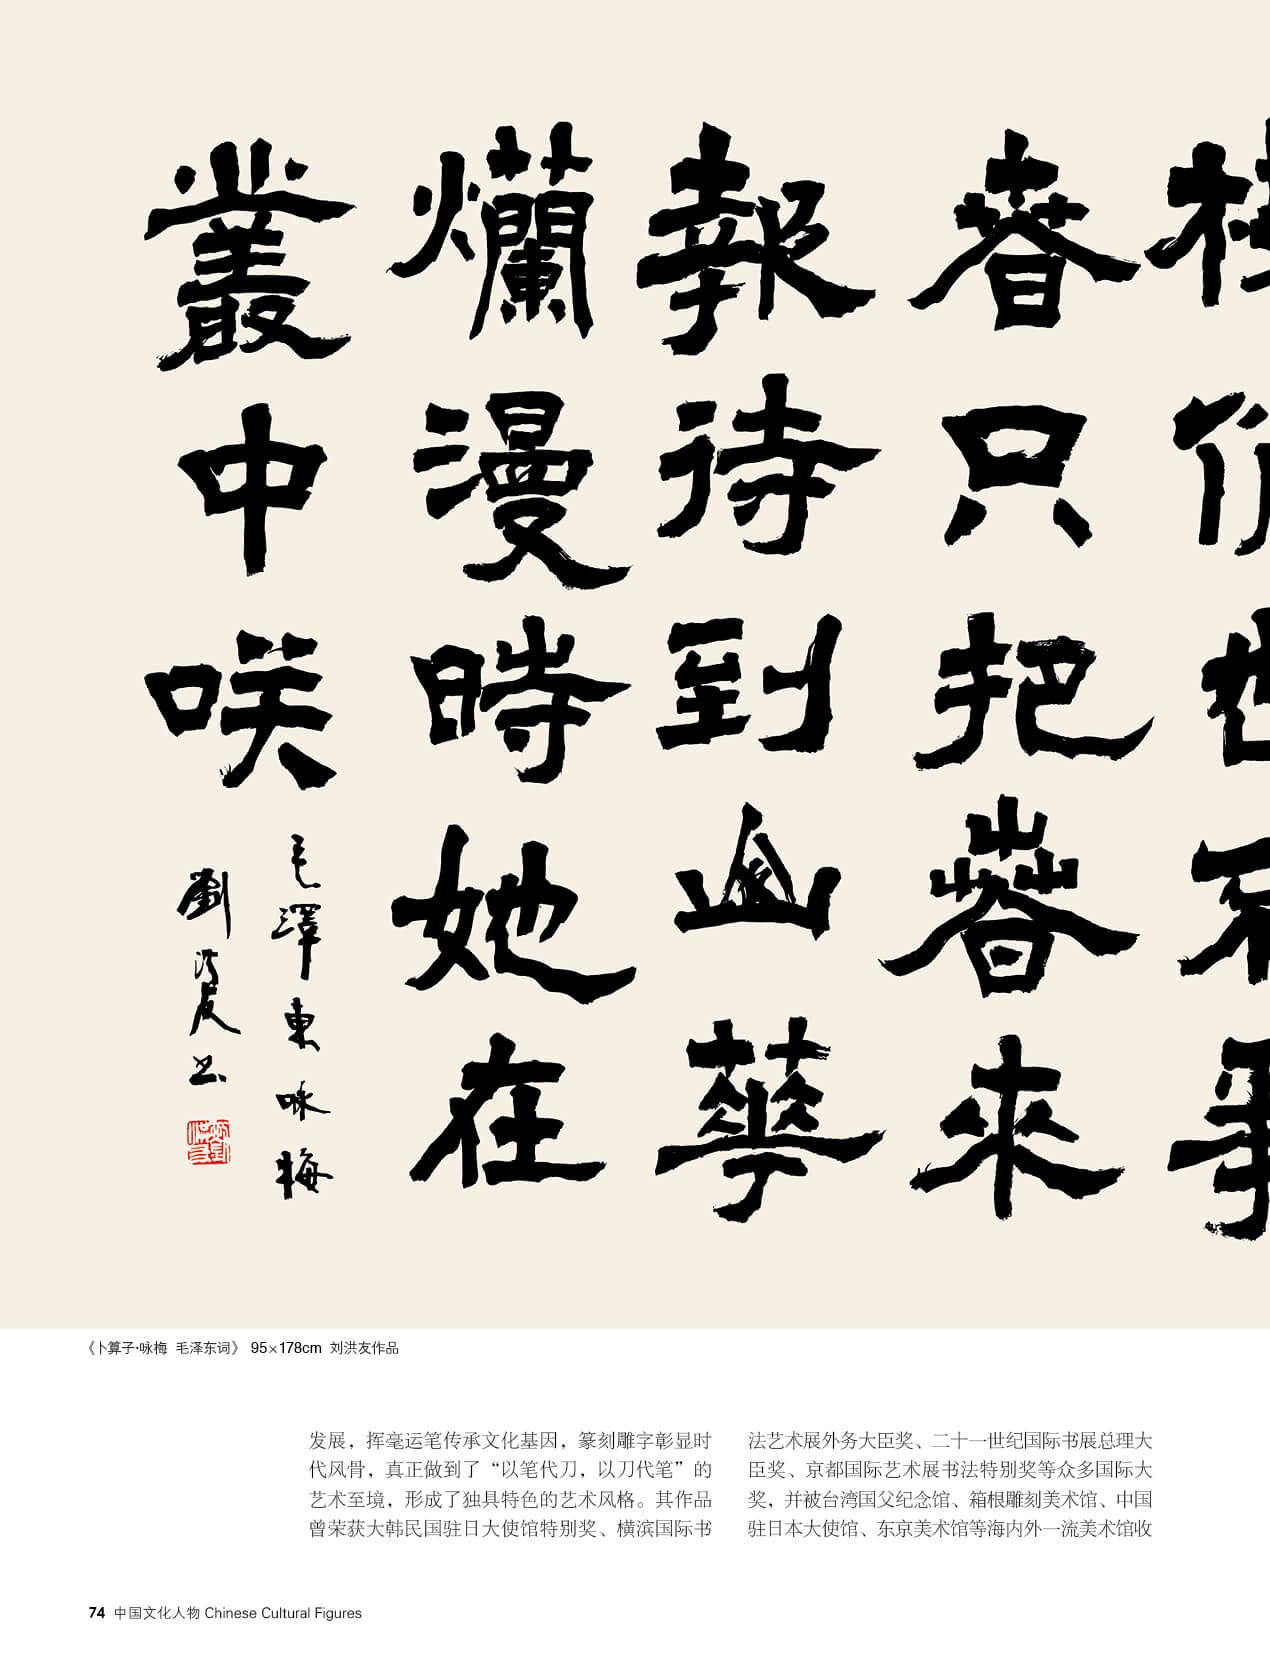 春只把春來
報待到山華
爛漫時她在
叢中咲
毛澤東咏梅
劉洪友书
《卜算子·咏梅 毛泽东词》 95×178cm 刘洪友作品
发展，挥毫运笔传承文化基因，篆刻雕字彰显时
代风骨，真正做到了“以笔代刀，以刀代笔”的
艺术至境，形成了独具特色的艺术风格。其作品
曾荣获大韩民国驻日大使馆特别奖、横滨国际书
法艺术展外务大臣奖、二十一世纪国际书展总理大
臣奖、京都国际艺术展书法特别奖等众多国际大
奖，并被台湾国父纪念馆、箱根雕刻美术馆、中国
驻日本大使馆、东京美术馆等海内外一流美术馆收
74 中国文化人物 Chinese Cultural Figures